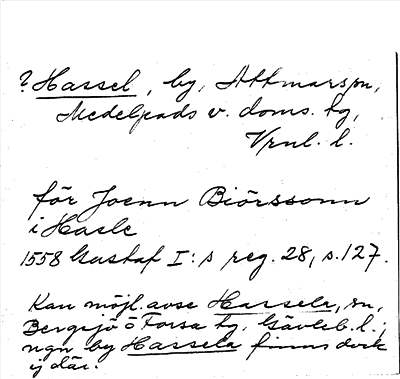 ? Hassel, by, Attmars sn,
Medelpads v. doms. tg,
Vrnl. l.
för Joenn Biörssonn
i Hasle
1558 Gustaf I:s reg. 28, s. 127.
Kan möjl. avse Hassela, sn,
Bergsjö o Forsa tg, Gävleb. l.,
ngn by Hassela finns dock
ej där.